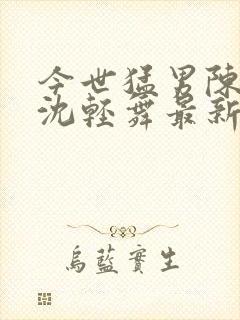 今世猛男陳
沈輕舞最新
烏藍實生